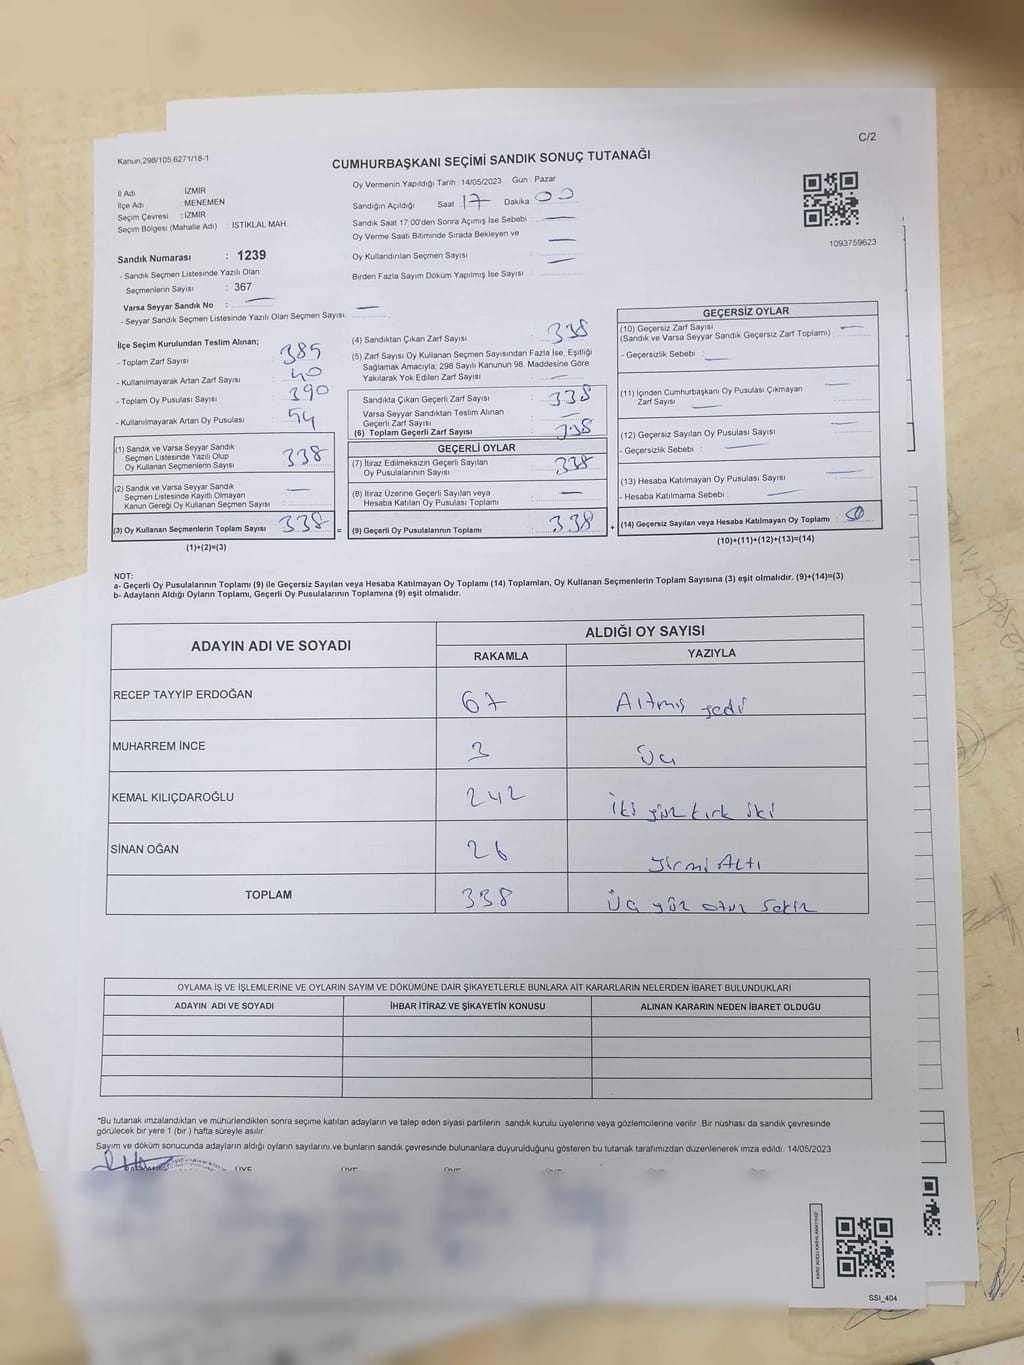 C/2
Kanun;298/105;6271/18-1
CUMHURBAŞKANI SEÇİMİ SANDIK SONUÇ TUTANAĞI
İl Adı : İZMİR
İlçe Adı : MENEMEN
Seçim Çevresi : İZMİR
Seçim Bölgesi (Mahalle Adı) : İSTİKLAL MAH.
Sandık Numarası : 1239
- Sandık Seçmen Listesinde Yazılı Olan
Seçmenlerin Sayısı : 367
Varsa Seyyar Sandık No :
- Seyyar Sandık Seçmen Listesinde Yazılı Olan Seçmen Sayısı:
Oy Vermenin Yapıldığı Tarih : 14/05/2023 Gün : Pazar
Sandığın Açıldığı Saat 17 Dakika 00
Sandık Saat 17:00'den Sonra Açımış İse Sebebi :
Oy Verme Saati Bitiminde Sırada Bekleyen ve
Oy Kullandırılan Seçmen Sayısı :
Birden Fazla Sayım Döküm Yapılmış İse Sayısı :
1093759623
İlçe Seçim Kurulundan Teslim Alınan;
- Toplam Zarf Sayısı : 385
- Kullanılmayarak Artan Zarf Sayısı : 40
- Toplam Oy Pusulası Sayısı : 390
- Kullanılmayarak Artan Oy Pusulası : 54
(1) Sandık ve Varsa Seyyar Sandık
Seçmen Listesinde Yazılı Olup
Oy Kullanan Seçmenlerin Sayısı : 338
(2) Sandık ve Varsa Seyyar Sandık
Seçmen Listesinde Kayıtlı Olmayan
Kanun Gereği Oy Kullanan Seçmen Sayısı :
(3) Oy Kullanan Seçmenlerin Toplam Sayısı : 338 =
(1)+(2)=(3)
(4) Sandıktan Çıkan Zarf Sayısı : 338
(5) Zarf Sayısı Oy Kullanan Seçmen Sayısından Fazla İse, Eşitliği
Sağlamak Amacıyla; 298 Sayılı Kanunun 98. Maddesine Göre
Yakılarak Yok Edilen Zarf Sayısı :
Sandıkta Çıkan Geçerli Zarf Sayısı : 338
Varsa Seyyar Sandıktan Teslim Alınan
Geçerli Zarf Sayısı :
(6) Toplam Geçerli Zarf Sayısı : 338
GEÇERLİ OYLAR
(7) İtiraz Edilmeksizin Geçerli Sayılan
Oy Pusulalarının Sayısı : 338
(8) İtiraz Üzerine Geçerli Sayılan veya
Hesaba Katılan Oy Pusulası Toplamı :
(9) Geçerli Oy Pusulalarının Toplamı : 338 +
GEÇERSİZ OYLAR
(10) Geçersiz Zarf Sayısı :
(Sandık ve Varsa Seyyar Sandık Geçersiz Zarf Toplamı)
- Geçersizlik Sebebi :
(11) İçinden Cumhurbaşkanı Oy Pusulası Çıkmayan
Zarf Sayısı :
(12) Geçersiz Sayılan Oy Pusulası Sayısı :
- Geçersizlik Sebebi :
(13) Hesaba Katılmayan Oy Pusulası Sayısı :
- Hesaba Katılmama Sebebi :
(14) Geçersiz Sayılan veya Hesaba Katılmayan Oy Toplamı :
(10)+(11)+(12)+(13)=(14)
NOT:
a- Geçerli Oy Pusulalarının Toplamı (9) ile Geçersiz Sayılan veya Hesaba Katılmayan Oy Toplamı (14) Toplamları, Oy Kullanan Seçmenlerin Toplam Sayısına (3) eşit olmalıdır. (9)+(14)=(3)
b- Adayların Aldığı Oyların Toplamı, Geçerli Oy Pusulalarının Toplamına (9) eşit olmalıdır.
ADAYIN ADI VE SOYADI
ALDIĞI OY SAYISI
RAKAMLA YAZIYLA
RECEP TAYYİP ERDOĞAN 67 Altmış yedi
MUHARREM İNCE 3 Üç
KEMAL KILIÇDAROĞLU 242 İki yüz kırk iki
SİNAN OĞAN 26 Yirmi Altı
TOPLAM 338 Üç yüz otuz sekiz
OYLAMA İŞ VE İŞLEMLERİNE VE OYLARIN SAYIM VE DÖKÜMÜNE DAİR ŞİKAYETLERLE BUNLARA AİT KARARLARIN NELERDEN İBARET BULUNDUKLARI
ADAYIN ADI VE SOYADI İHBAR İTİRAZ VE ŞİKAYETİN KONUSU ALINAN KARARIN NEDEN İBARET OLDUĞU
*Bu tutanak imzalandıktan ve mühürlendikten sonra seçime katılan adayların ve talep eden siyasi partilerin sandık kurulu üyelerine veya gözlemcilerine verilir. Bir nüshası da sandık çevresinde
görülecek bir yere 1 (bir ) hafta süreyle asılır.
Sayım ve döküm sonucunda adayların aldığı oyların sayılarını ve bunların sandık çevresinde bulunanlara duyurulduğunu gösteren bu tutanak tarafımızdan düzenlenerek imza edildi. 14/05/2023
ÜYE ÜYE ÜYE
KARE KODU KARALAMAYINIZ!
SSI_404